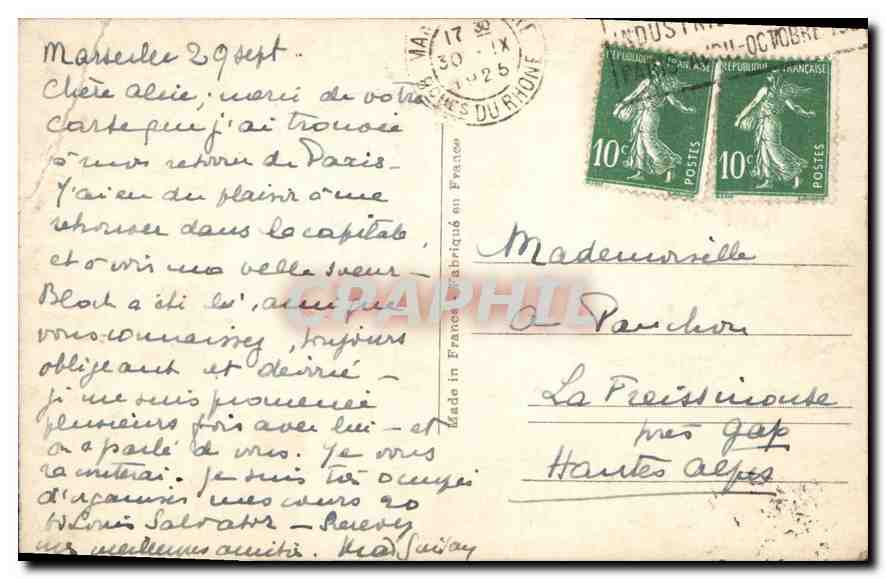 Marseille 29 sept.
Chère Alice; merci de votre
carte que j'ai trouvée
à mon retour de Paris –
J'ai eu du plaisir à me
retrouver dans la capitale,
et à voir ma belle sœur –
Bloch a été là,
vous connaissez, toujours
obligeant et –
je me suis promenée
plusieurs fois avec lui – et
on a parlé de vous. Je vous
raconterai. Je suis très occupée
d'organiser mes cours 20
Bd Louis Salvator – Recevez
mes meilleures amitiés.
Made in France - Fabriqué en France
17 30
30 - IX
1925
BCHES DU RHONE
INDUSTRI
PARIS OCTOBRE
REPUBLIQUE FRANÇAISE
10c
POSTES
REPUBLIQUE FRANÇAISE
10c
POSTES
Mademoiselle
A Panchon
La Freissinouse
près Gap
Hautes Alpes
CPAPHIL